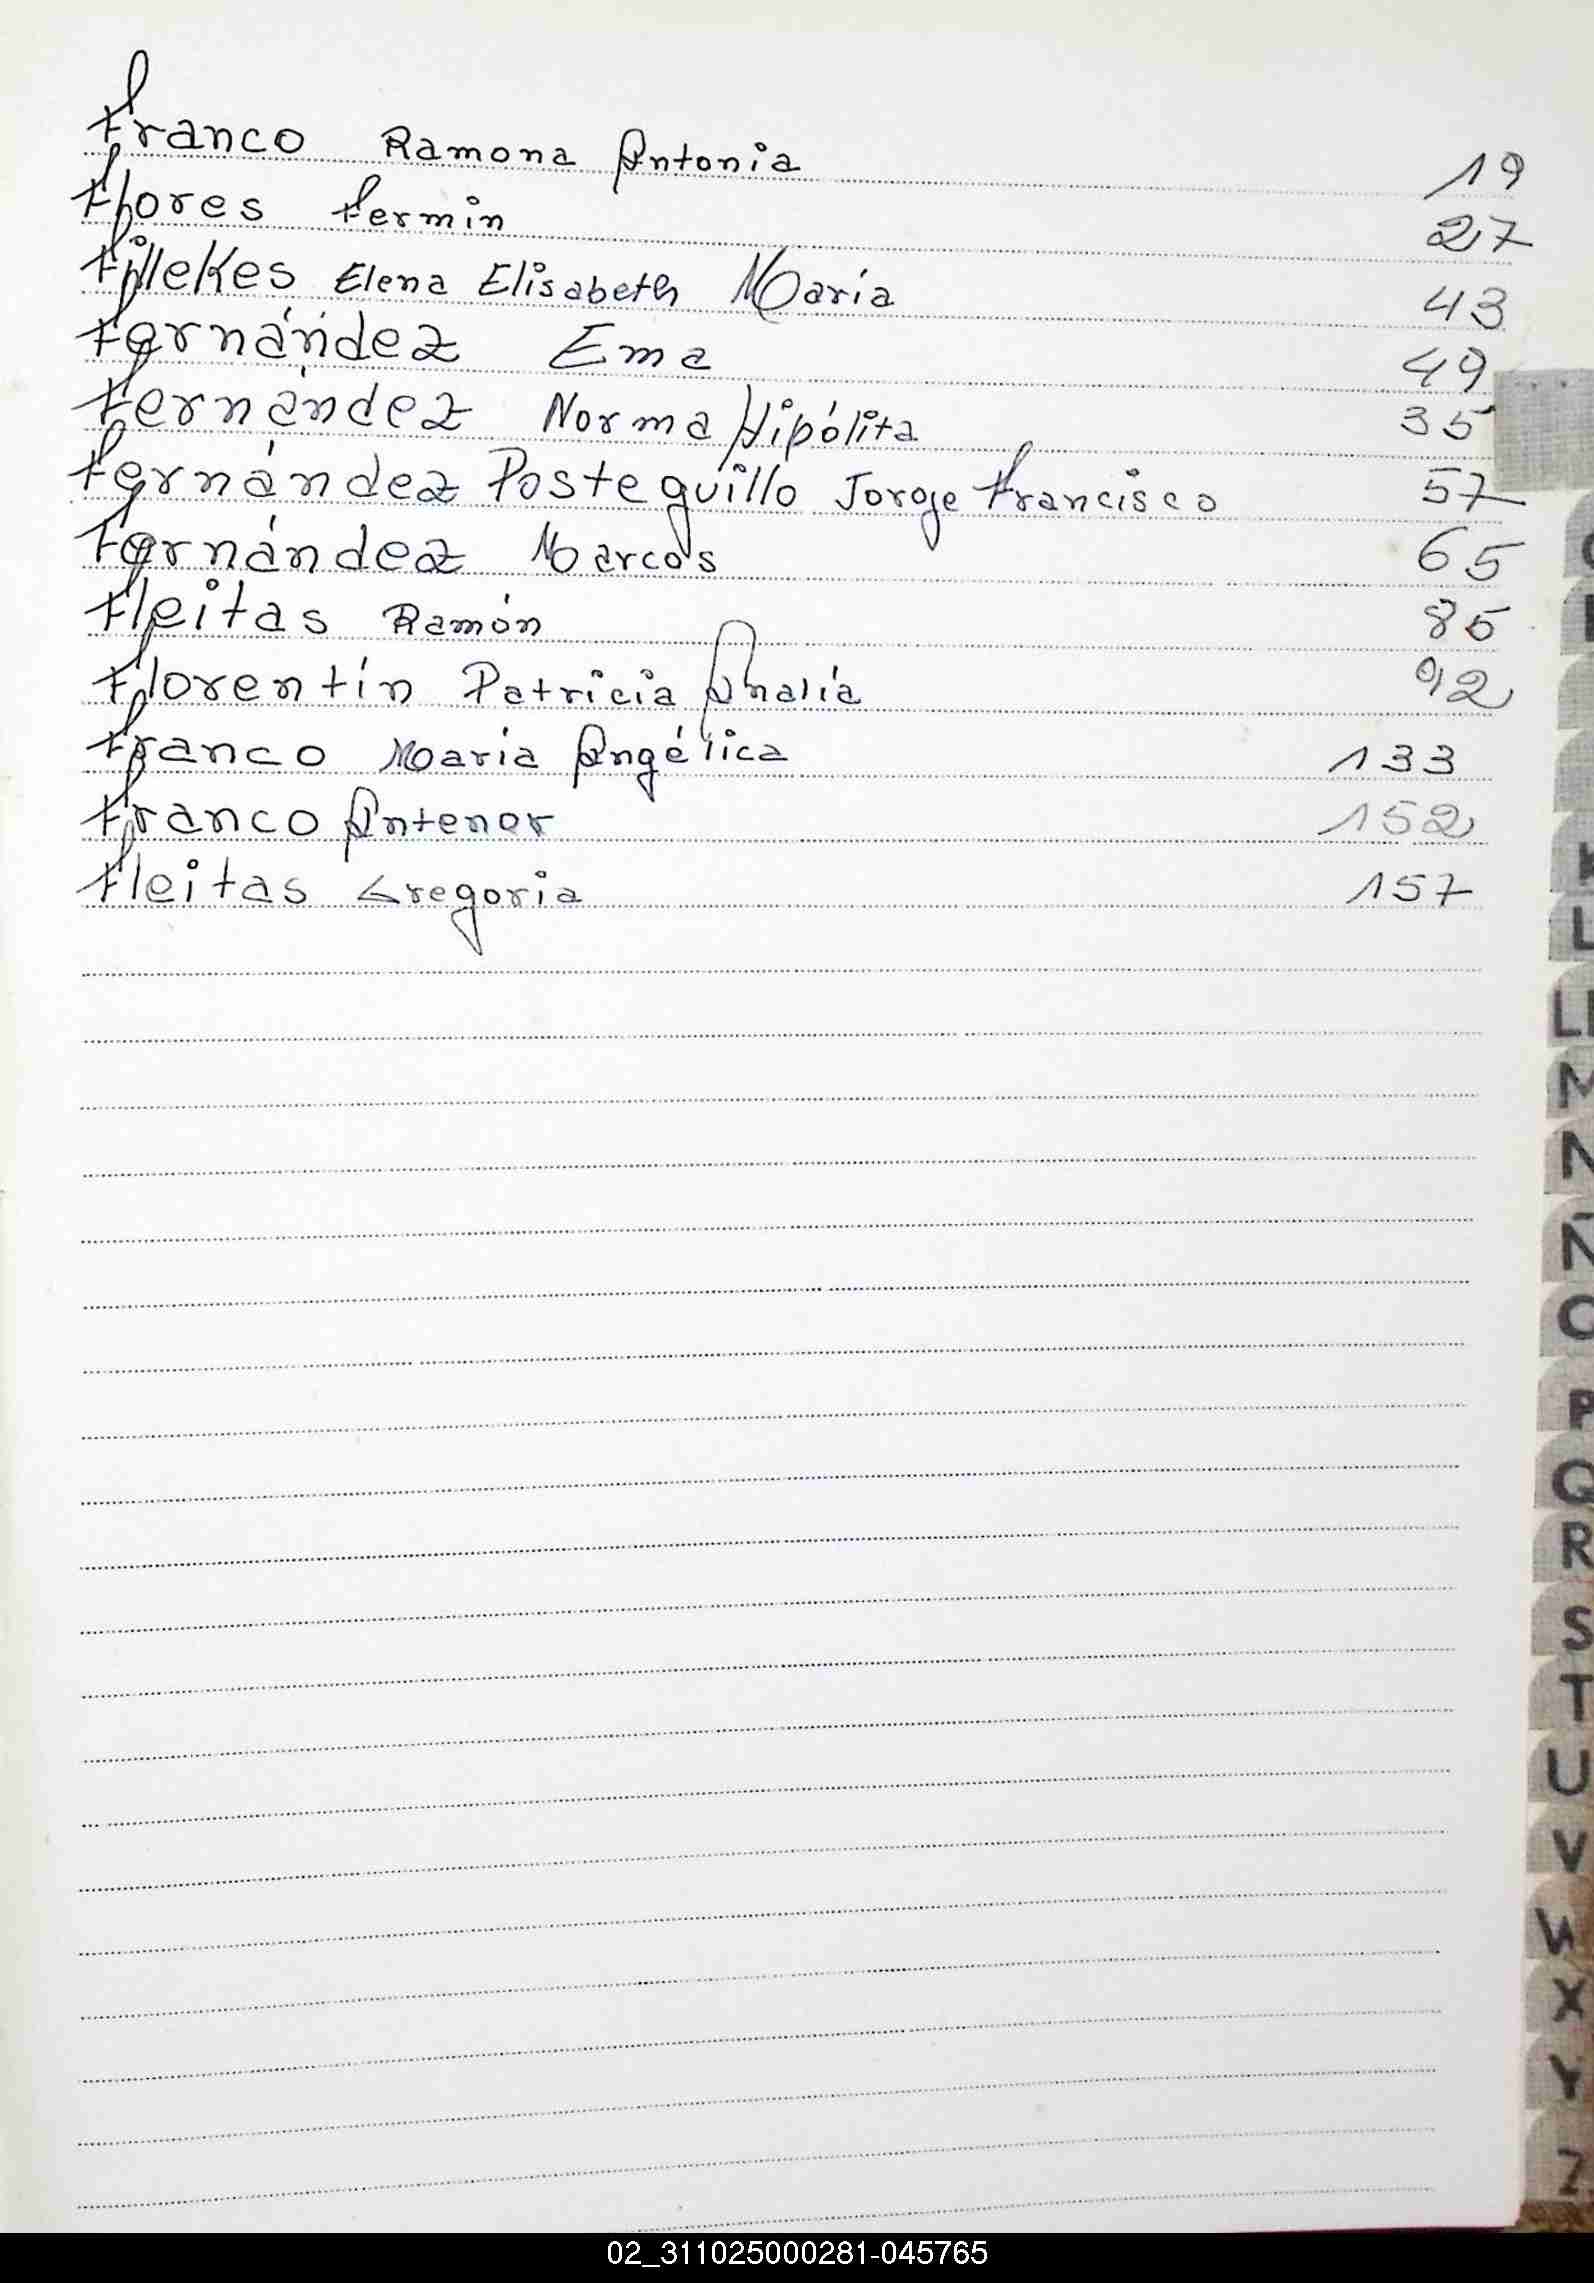 Franco Ramona Antonia 19
Flores Fermin 27
Fillekes Elena Elisabeth María 43
Fernández Ema 49
Fernández Norma Hipólita 35
Fernández Posteguillo Jorge Francisco 57
Fernández Marcos 65
Fleitas Ramón 85
Florentín Patricia Analía 92
Franco María Angélica 133
Franco Antenor 152
Fleitas Gregoria 157
K
L
LL
M
N
Ñ
O
P
Q
R
S
T
U
V
W
X
Y
Z
02_311025000281-045765